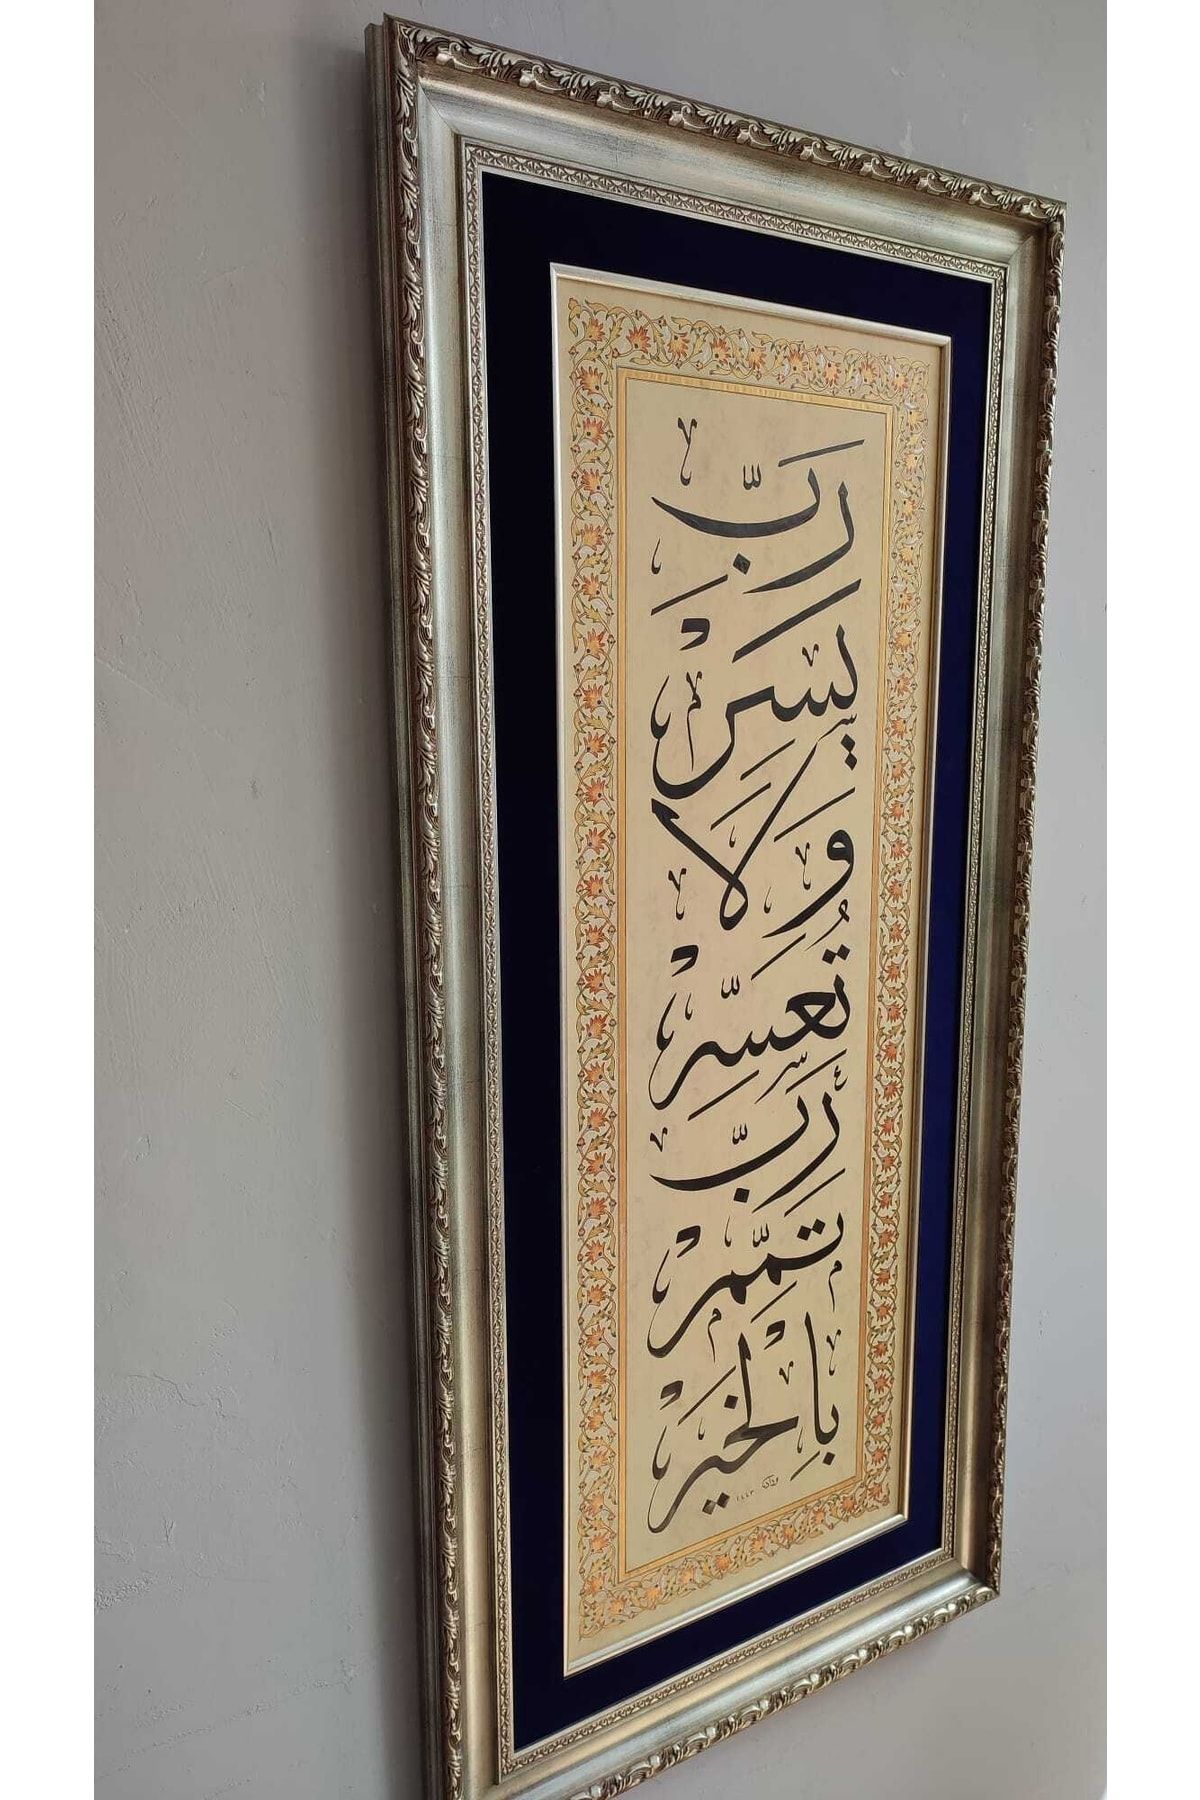 رَبِّ
يَسِّرْ
وَلَا
تُعَسِّرْ
رَبِّ
تَمِّمْ
بِالْخَيْرِ
١٤٤٣